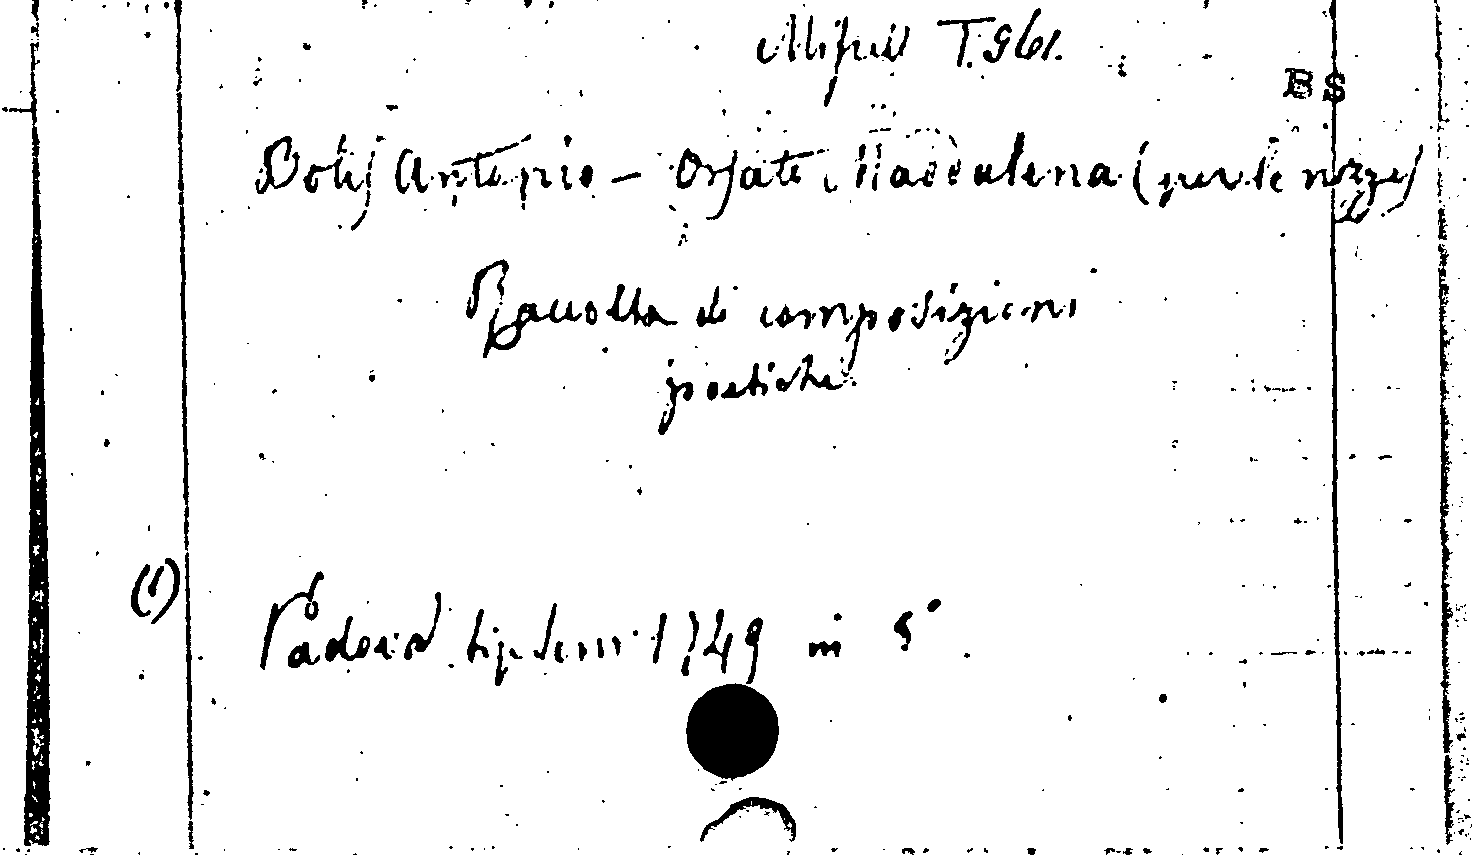 Miscell T. 961.
BS
Antonio – Orsato Maddalena (per le nozze)
Raccolta di composizioni
poetiche
(1)
Padova tip Sem 1749 in 8°